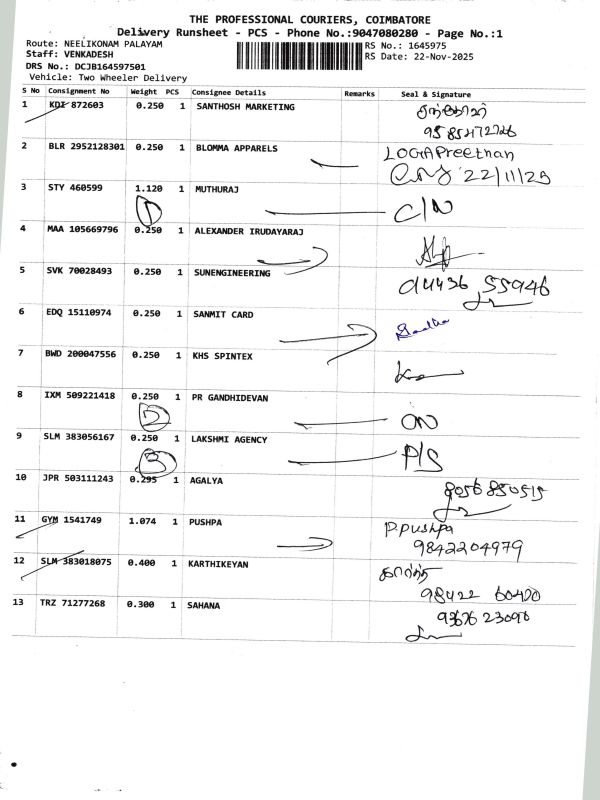 THE PROFESSIONAL COURIERS, COIMBATORE
Delivery Runsheet - PCS - Phone No.:9047080280 - Page No.:1
Route: NEELIKONAM PALAYAM
Staff: VENKADESH
DRS No.: DCJB164597501
Vehicle: Two Wheeler Delivery
RS No.: 1645975
RS Date: 22-Nov-2025
S No Consignment No Weight PCS Consignee Details Remarks Seal & Signature
1 KDI 872603 0.250 1 SANTHOSH MARKETING
2 BLR 2952128301 0.250 1 BLOMMA APPARELS
22/11/25
3 STY 460599 1.120 1 MUTHURAJ C/N
1
4 MAA 105669796 0.250 1 ALEXANDER IRUDAYARAJ
5 SVK 70028493 0.250 1 SUNENGINEERING 94436 55946
6 EDQ 15110974 0.250 1 SANMIT CARD
7 BWD 200047556 0.250 1 KHS SPINTEX
8 IXM 509221418 0.250 1 PR GANDHIDEVAN ON
2
9 SLM 383056167 0.250 1 LAKSHMI AGENCY P/S
3
10 JPR 503111243 0.295 1 AGALYA 8056850515
11 GYM 1541749 1.074 1 PUSHPA P.pushpa
9842204979
12 SLM 383018075 0.400 1 KARTHIKEYAN கார்த்தி
98422 60420
13 TRZ 71277268 0.300 1 SAHANA 93676 23090